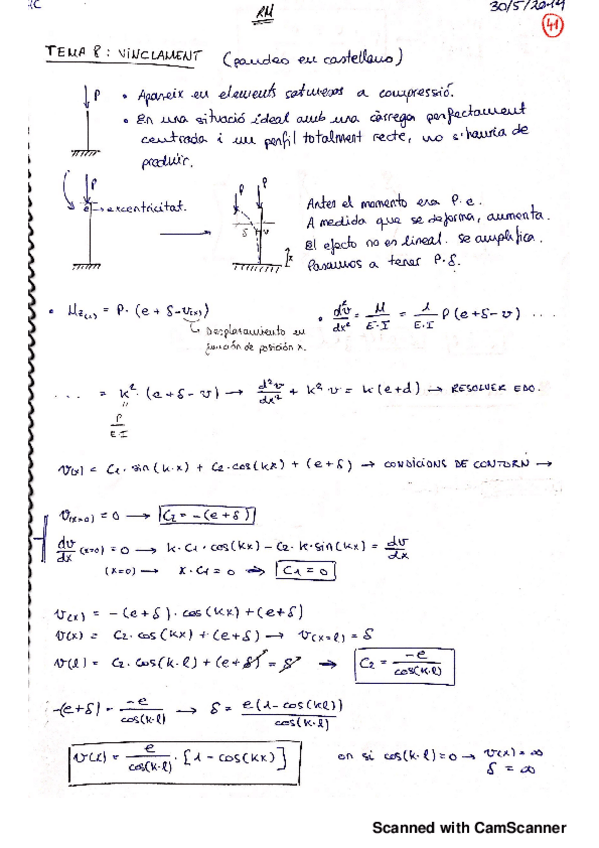 RM
30/5/2019
41
TEMA 8: VINCLAMENT (pandeo en castellano)
P
• Apareix en elements sotmesos a compressió.
• En una situació ideal amb una càrrega perfectament
centrada i un perfil totalment recte, no s'hauria de
produir.
P
e → excentricitat.
P P
δ v
x
Antes el momento era P·e.
A medida que se deforma, aumenta.
El efecto no es lineal. Se amplifica.
Pasamos a tener P·δ.
• Mz(x) = P·(e + δ - v(x))
↳ Desplazamiento en
función de posición x.
• d²v/dx² = M/E·I = 1/E·I P(e+δ-v) ...
... = k²·(e+δ-v) → d²v/dx² + k²v = k(e+d) → RESOLVER EDO.
P/E·I
v(x) = C1·sin(k·x) + C2·cos(kx) + (e+δ) → CONDICIONS DE CONTORN →
v(x=0) = 0 → C2 = -(e+δ)
dv/dx (x=0) = 0 → k·C1·cos(kx) - C2·k·sin(kx) = dv/dx
(x=0) → k·C1 = 0 → C1 = 0
v(x) = -(e+δ)·cos(kx) + (e+δ)
v(x) = C2·cos(kx) + (e+δ) → v(x=l) = δ
v(l) = C2·cos(k·l) + (e+δ) = δ → C2 = -e/cos(k·l)
-(e+δ) = -e/cos(k·l) → δ = e(1-cos(kl))/cos(k·l)
v(x) = e/cos(k·l) · [1 - cos(kx)] on si cos(k·l) = 0 → v(x) = ∞
δ = ∞
Scanned with CamScanner